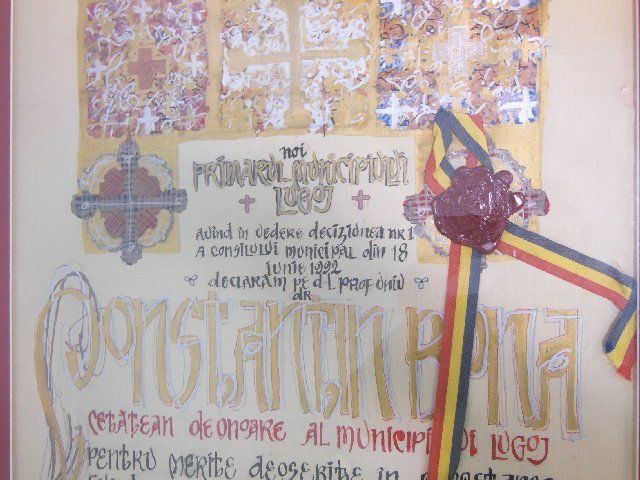 noi
PRIMARUL MUNICIPIULUI
LUGOJ
avind in vedere deciziunea nr 1
a consiliului municipal din 18
iunie 1992
declaram pe d-l prof univ
dr
Constantin Bona
cetatean de onoare al municipiului LUGOJ
pentru merite deosebite in